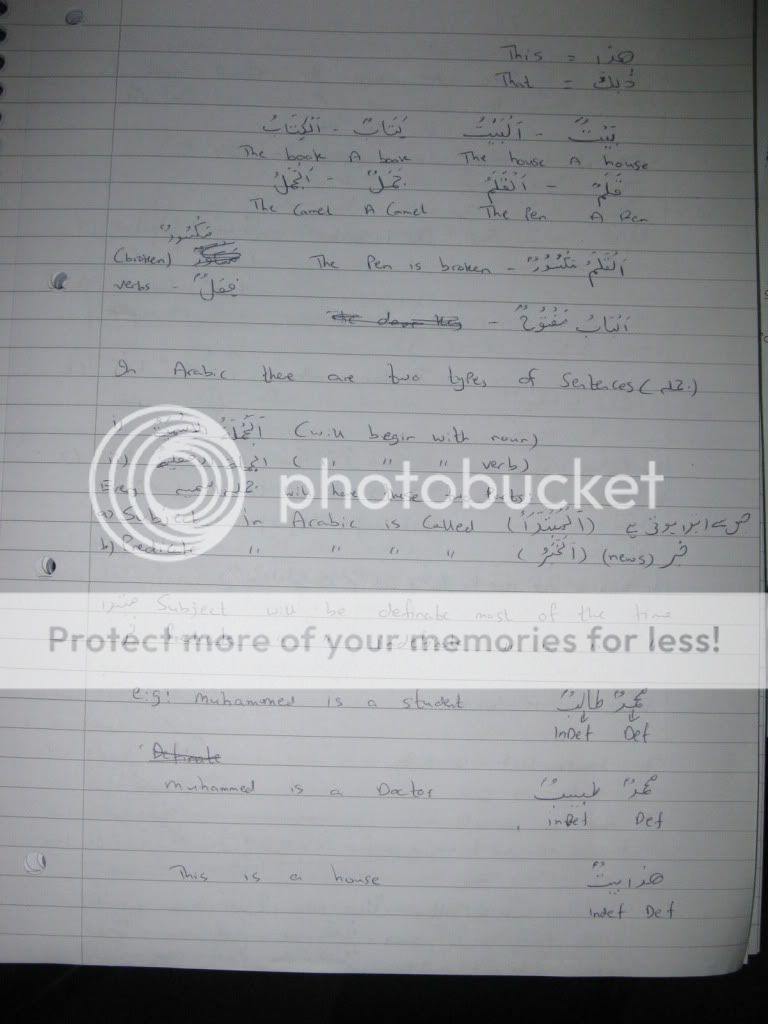 This = هذا
That = ذٰلِكَ
بَيْتٌ - اَلْبَيْتُ كِتَابٌ - اَلْكِتَابُ
The book A book The house A house
قَلَمٌ - اَلْقَلَمُ جَمَلٌ - اَلْجَمَلُ
The Camel A Camel The Pen A Pen
مَكْسُورٌ
(broken) The Pen is broken - اَلْقَلَمُ مَكْسُورٌ
verbs - فِعْلٌ
اَلْبَابُ مَفْتُوحٌ -
In Arabic there are two types of Sentences (جملہ)
i) اَلْجُمْلَةُ (will begin with noun)
ii) ( " " " verb)
Every will have these Parts:
a) Subject in Arabic is Called (اَلْمُبْتَدَأُ) جس سے ابتدا ہوتی ہے
b) Predicate " " " " (اَلْخَبَرُ) (news) خبر
مبتدا Subject will be definate most of the time
e.g: Muhammed is a student مُحَمَّدٌ طَالِبٌ
InDef Def
Definate
Muhammed is a Doctor مُحَمَّدٌ طَبِيبٌ
inDef Def
This is a house هذا بَيْتٌ
Indef Def
photobucket
Protect more of your memories for less!